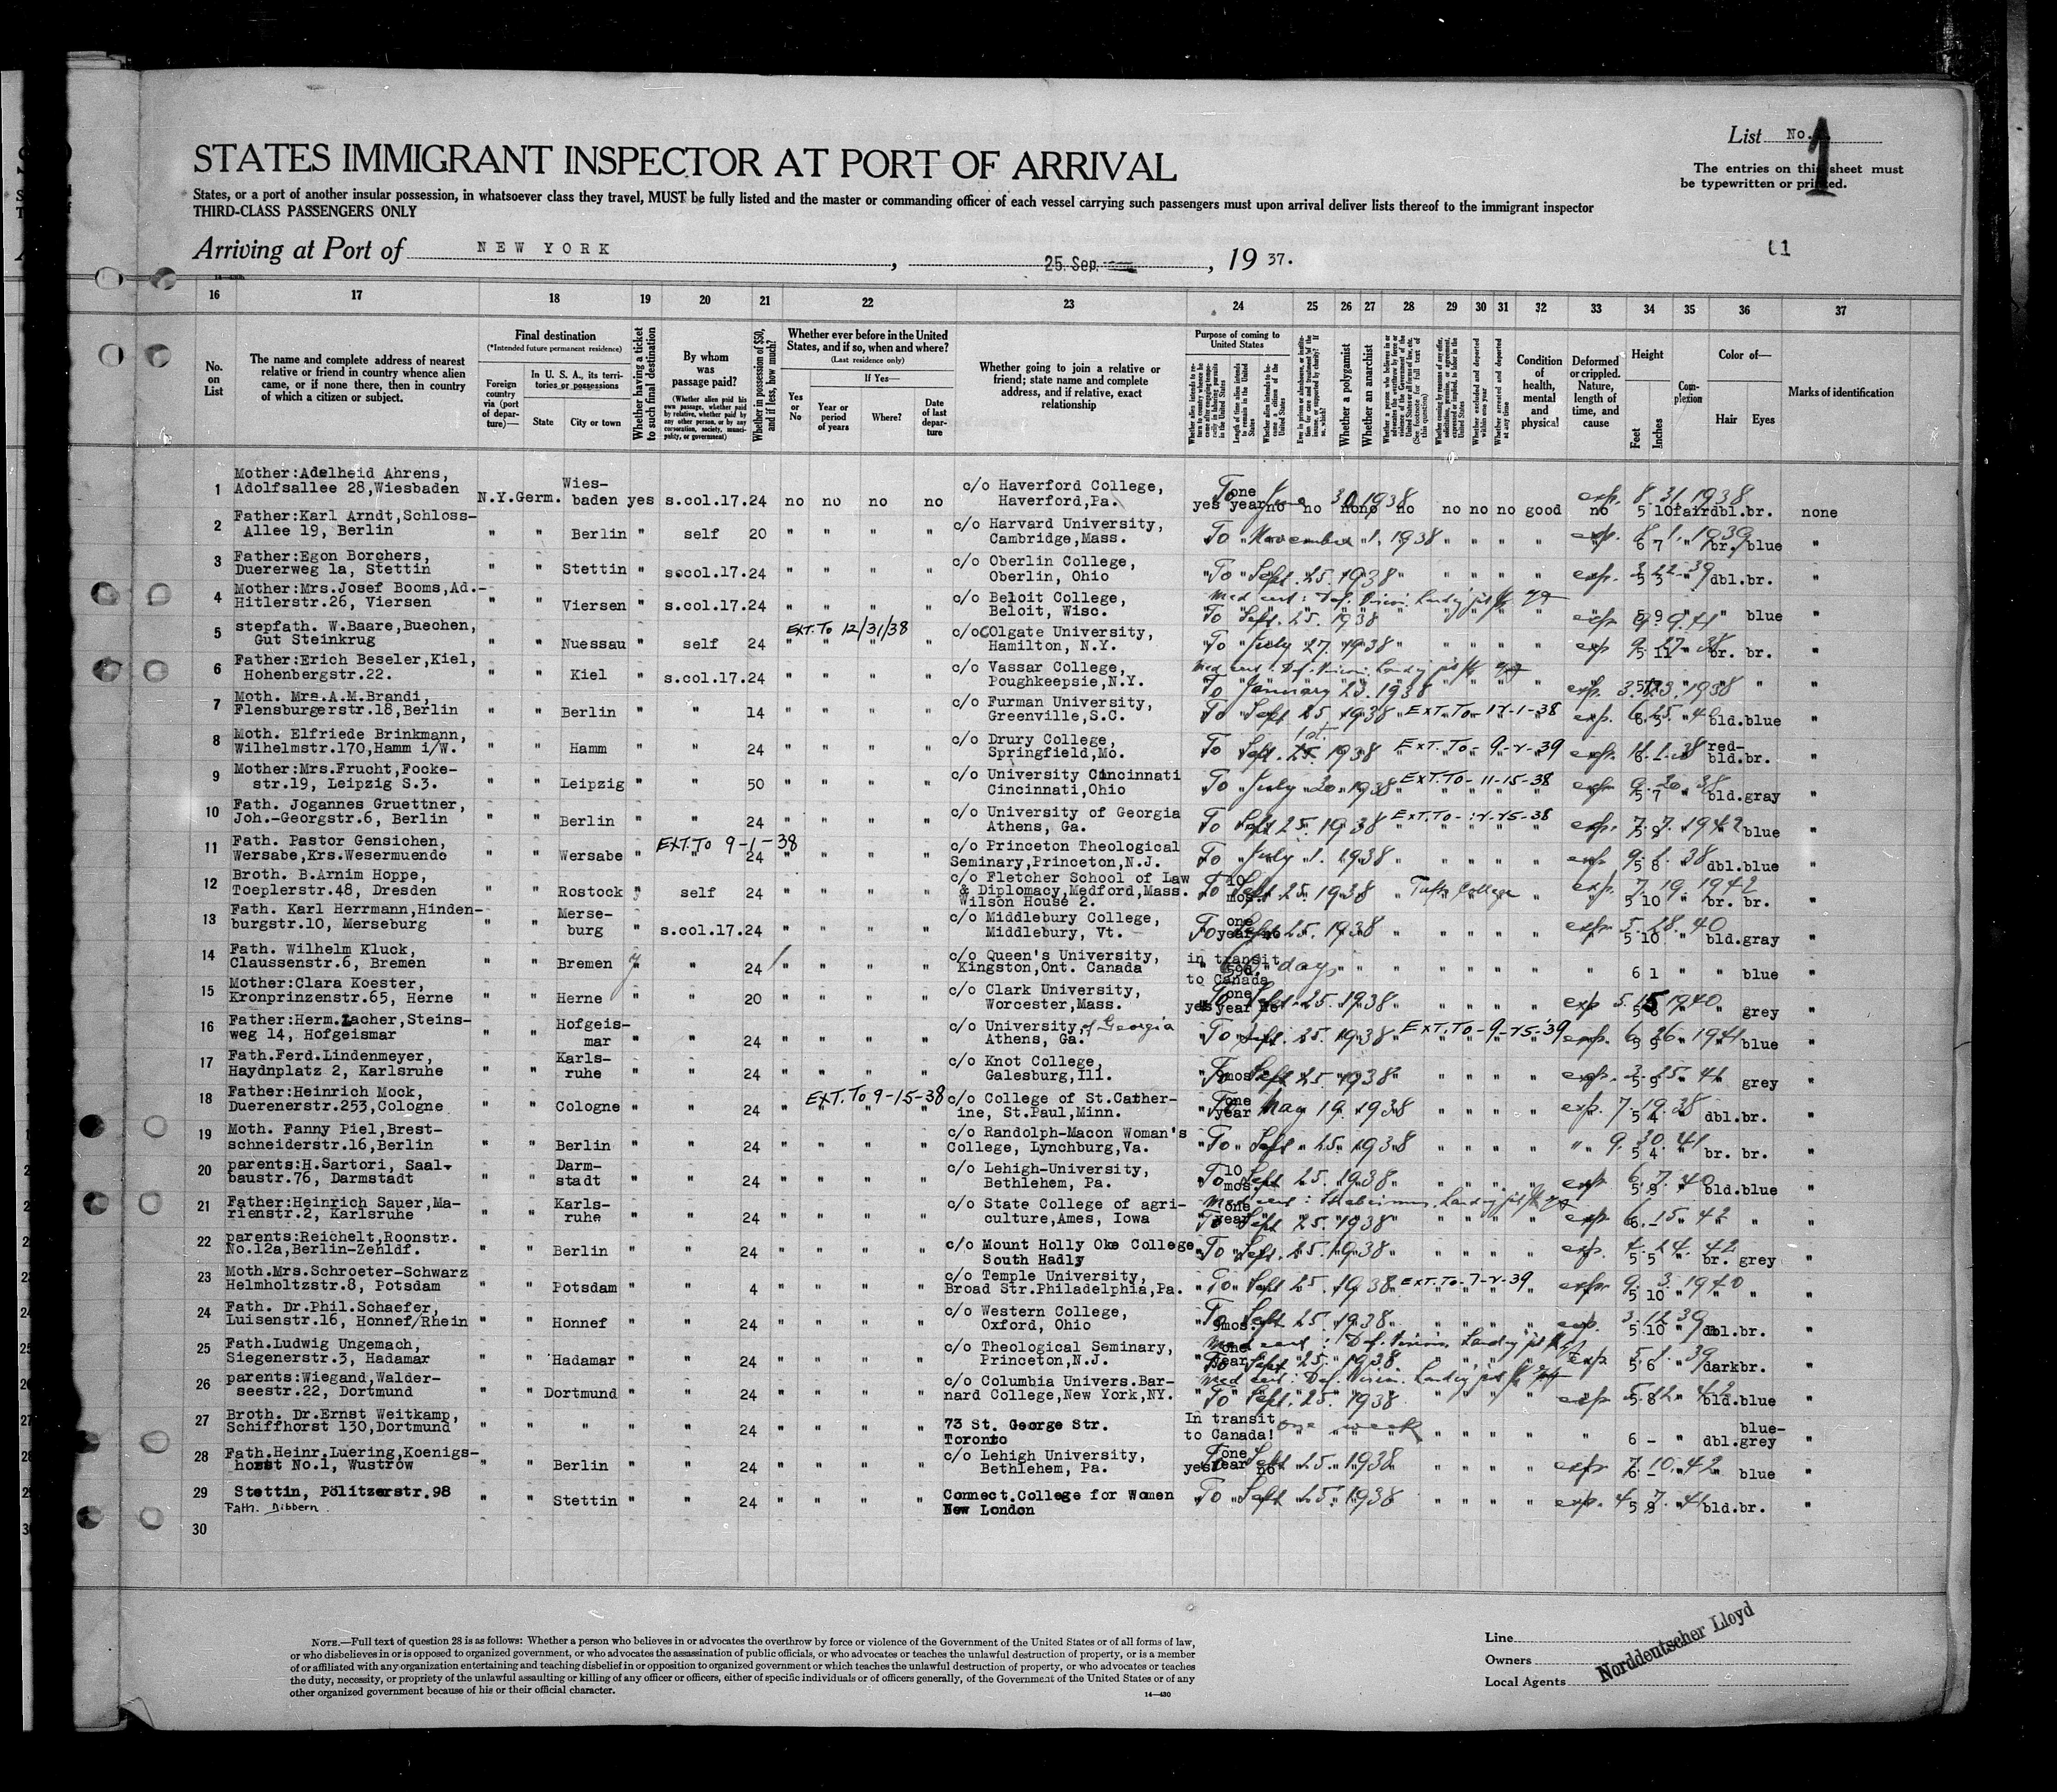 List No. 1
STATES IMMIGRANT INSPECTOR AT PORT OF ARRIVAL
The entries on this sheet must
be typewritten or printed.
States, or a port of another insular possession, in whatsoever class they travel, MUST be fully listed and the master or commanding officer of each vessel carrying such passengers must upon arrival deliver lists thereof to the immigrant inspector
THIRD-CLASS PASSENGERS ONLY
Arriving at Port of NEW YORK, 25. Sep., 1937.
16 17 18 19 20 21 22 23 24 25 26 27 28 29 30 31 32 33 34 35 36 37
No. on List
The name and complete address of nearest relative or friend in country whence alien came, or if none there, then in country of which a citizen or subject.
Final destination
(*Intended future permanent residence)
Foreign country via (port of departure)—
In U. S. A., its territories or possessions
State
City or town
Whether having a ticket to such final destination
By whom was passage paid?
(Whether alien paid his own passage, whether paid by relative, whether paid by any other person, or by any corporation, society, municipality, or government)
Whether in possession of $50, and if less, how much?
Whether ever before in the United States, and if so, when and where?
(Last residence only)
If Yes—
Yes or No
Year or period of years
Where?
Date of last departure
Whether going to join a relative or friend; state name and complete address, and if relative, exact relationship
Purpose of coming to United States
Whether a polygamist
Whether an anarchist
Condition of health, mental and physical
Deformed or crippled. Nature, length of time, and cause
Height
Feet
Inches
Complexion
Color of—
Hair
Eyes
Marks of identification
1 Mother:Adelheid Ahrens, Adolfsallee 28,Wiesbaden N.Y.Germ. Wies-baden yes s.col.17. 24 no no no no c/o Haverford College, Haverford,Pa. yes one year To June 30 1938 no no no no no no no good no exp. 8. 31. 1938 5 10 fair dbl. br. none
2 Father:Karl Arndt,Schloss-Allee 19, Berlin " " Berlin " self 20 " " " " c/o Harvard University, Cambridge,Mass. To November 1, 1938 exp. 8. 1. 1939 6 7 " br. blue "
3 Father:Egon Borchers, Duererweg 1a, Stettin " " Stettin " s.col.17. 24 " " " " c/o Oberlin College, Oberlin, Ohio To Sept. 25. 1938 exp. 5 5 " dbl. br. "
4 Mother:Mrs.Josef Booms,Ad.-Hitlerstr.26, Viersen " " Viersen " s.col.17. 24 " " " " c/o Beloit College, Beloit, Wisc. Med cert: Def. Vision. To Sept. 25. 1938 exp blue "
5 stepfath. W.Baare,Buechen, Gut Steinkrug " " Nuessau " self 24 EXT. TO 12/31/38 c/o COlgate University, Hamilton, N.Y. To July 27, 1938 exp 9. 27. 38 5 11 br. br. "
6 Father:Erich Beseler,Kiel, Hohenbergstr.22. " " Kiel " s.col.17. 24 " " " " c/o Vassar College, Poughkeepsie,N.Y. Med cert: Def. Vision. To January 23. 1938 exp. "
7 Moth. Mrs.A.M.Brandi, Flensburgerstr.18,Berlin " " Berlin " " 14 " " " " c/o Furman University, Greenville,S.C. To Sept 25 1938 EXT. TO- 12-1-38 exp. bld. blue "
8 Moth. Elfriede Brinkmann, Wilhelmstr.170,Hamm i/W. " " Hamm " " 24 " " " " c/o Drury College, Springfield,Mo. To Sept. 25. 1938 EXT. TO- 9-2-39 exp. red-bld. br. "
9 Mother:Mrs.Frucht,Focke-str.19, Leipzig S.3. " " Leipzig " " 50 " " " " c/o University Cincinnati Cincinnati,Ohio To July 20 1938 EXT. TO- 11-15-38 exp 9. 20. 38 5 7 " bld. gray "
10 Fath. Jogannes Gruettner, Joh.-Georgstr.6, Berlin " " Berlin " " 24 " " " " c/o University of Georgia Athens, Ga. To Sept 25. 1938 exp. 7. 7. 1942 blue "
11 Fath. Pastor Gensichen, Wersabe,Krs.Wesermuende " " Wersabe " EXT. TO 9-1-38 24 " " " " c/o Princeton Theological Seminary,Princeton,N.J. To July 1. 1938 exp 9. 1. 38 5 8 dbl. blue "
12 Broth. B.Arnim Hoppe, Toeplerstr.48, Dresden " " Rostock " self 24 " " " " c/o Fletcher School of Law & Diplomacy,Medford,Mass. Wilson House 2. 10 mos. To Sept 25. 1938 Tufts College exp. 7. 19. 1942 5 10 br. br. "
13 Fath. Karl Herrmann,Hinden-burgstr.10, Merseburg " " Merse-burg " s.col.17. 24 " " " " c/o Middlebury College, Middlebury, Vt. one year no To Sept 25. 1938 exp. 5. 28. 40 5 10 " bld. gray "
14 Fath. Wilhelm Kluck, Claussenstr.6, Bremen " " Bremen " " 24 " " " " c/o Queen's University, Kingston,Ont. Canada in transit to Canada day 6 1 " " blue "
15 Mother:Clara Koester, Kronprinzenstr.65, Herne " " Herne " " 20 " " " " c/o Clark University, Worcester,Mass. yes one year no To Sept. 25. 1938 exp 5. 15 1940 " grey "
16 Father:Herm.Lacher,Steins-weg 14, Hofgeismar " " Hofgeis-mar " " 24 " " " " c/o University of Georgia Athens, Ga. To Sept. 25. 1938 EXT. TO- 9-25-'39 exp. 6. 26. 1941 5 9 blue "
17 Fath.Ferd.Lindenmeyer, Haydnplatz 2, Karlsruhe " " Karls-ruhe " " 24 " " " " c/o Knot College, Galesburg,Ill. 9mos To Sept 25 1938 exp. 3. 25. 41 5 9 grey "
18 Father:Heinrich Mock, Duerenerstr.253,Cologne " " Cologne " " 24 EXT. TO 9-15-38 c/o College of St.Cather-ine, St.Paul,Minn. one year To May 19. 1938 exp. 7 19. 38 5 4 dbl. br. "
19 Moth. Fanny Piel,Brest-schneiderstr.16,Berlin " " Berlin " " 24 " " " " c/o Randolph-Macon Woman's College, Lynchburg,Va. To Sept 25. 1938 " 9. 30. 41 5 4 br. br. "
20 parents:H.Sartori, Saal-baustr.76, Darmstadt " " Darm-stadt " " 24 " " " " c/o Lehigh-University, Bethlehem, Pa. 10 mos. To Sept 25. 1938 exp 6. 7. 40 5 9 bld. blue "
21 Father:Heinrich Sauer,Ma-rienstr.2, Karlsruhe " " Karls-ruhe " " 24 " " " " c/o State College of agri-culture,Ames, Iowa Med cert: one year To Sept 25. 1938 exp 6. 15. 42 " " "
22 parents:Reichelt,Roonstr. No.12a,Berlin-Zehldf. " " Berlin " " 24 " " " " c/o Mount Holly Oke College South Hadly To Sept. 25. 1938 exp. 5 5 br. grey "
23 Moth.Mrs.Schroeter-Schwarz Helmholtzstr.8, Potsdam " " Potsdam " " 4 " " " " c/o Temple University, Broad Str.Philadelphia,Pa. To Sept 25. 1938 EXT. TO-7-2-39 exp. 9. 3. 1940 5 10 " " "
24 Fath. Dr.Phil.Schaefer, Luisenstr.16, Honnef/Rhein " " Honnef " " 24 " " " " c/o Western College, Oxford, Ohio 9mos. To Sept 25. 1938 exp. 3. 12. 39 5 10 " dbl. br. "
25 Fath.Ludwig Ungemach, Siegenerstr.3, Hadamar " " Hadamar " " 24 " " " " c/o Theological Seminary, Princeton,N.J. Med cert: Def. Vision. one year To Sept 25. 1938 exp. 5. 1. 39 5 6 " dark br. "
26 parents:Wiegand,Walder-seestr.22, Dortmund " " Dortmund " " 24 " " " " c/o Columbia Univers.Bar-nard College,New York,NY. Med cert: Def. Vision. To Sept. 25. 1938 exp bld. blue "
27 Broth. Dr.Ernst Weitkamp, Schiffhorst 130,Dortmund " " " " " 24 " " " " 73 St. George Str. Toronto In transit to Canada! one week 6 - " dbl. blue-grey "
28 Fath.Heinr.Luering,Koenigs-horst No.1, Wustrow " " Berlin " " 24 " " " " c/o Lehigh University, Bethlehem, Pa. yes one year no To Sept 25. 1938 exp. 7. 10. 42 6 - " blue "
29 Stettin, Pölitzerstr.98 Fath. Dibbern " " Stettin " " 24 " " " " Connect.College for Women New London To Sept 25. 1938 exp. 4. 7. 41 5 9 bld. br. "
30
NOTE.—Full text of question 28 is as follows: Whether a person who believes in or advocates the overthrow by force or violence of the Government of the United States or of all forms of law,
or who disbelieves in or is opposed to organized government, or who advocates the assassination of public officials, or who advocates or teaches the unlawful destruction of property, or is a member
of or affiliated with any organization entertaining and teaching disbelief in or opposition to organized government or which teaches the unlawful destruction of property, or who advocates or teaches
the duty, necessity, or propriety of the unlawful assaulting or killing of any officer or officers, either of specific individuals or of officers generally, of the Government of the United States or of any
other organized government because of his or their official character.
14—430
Line
Owners
Local Agents
Norddeutscher Lloyd